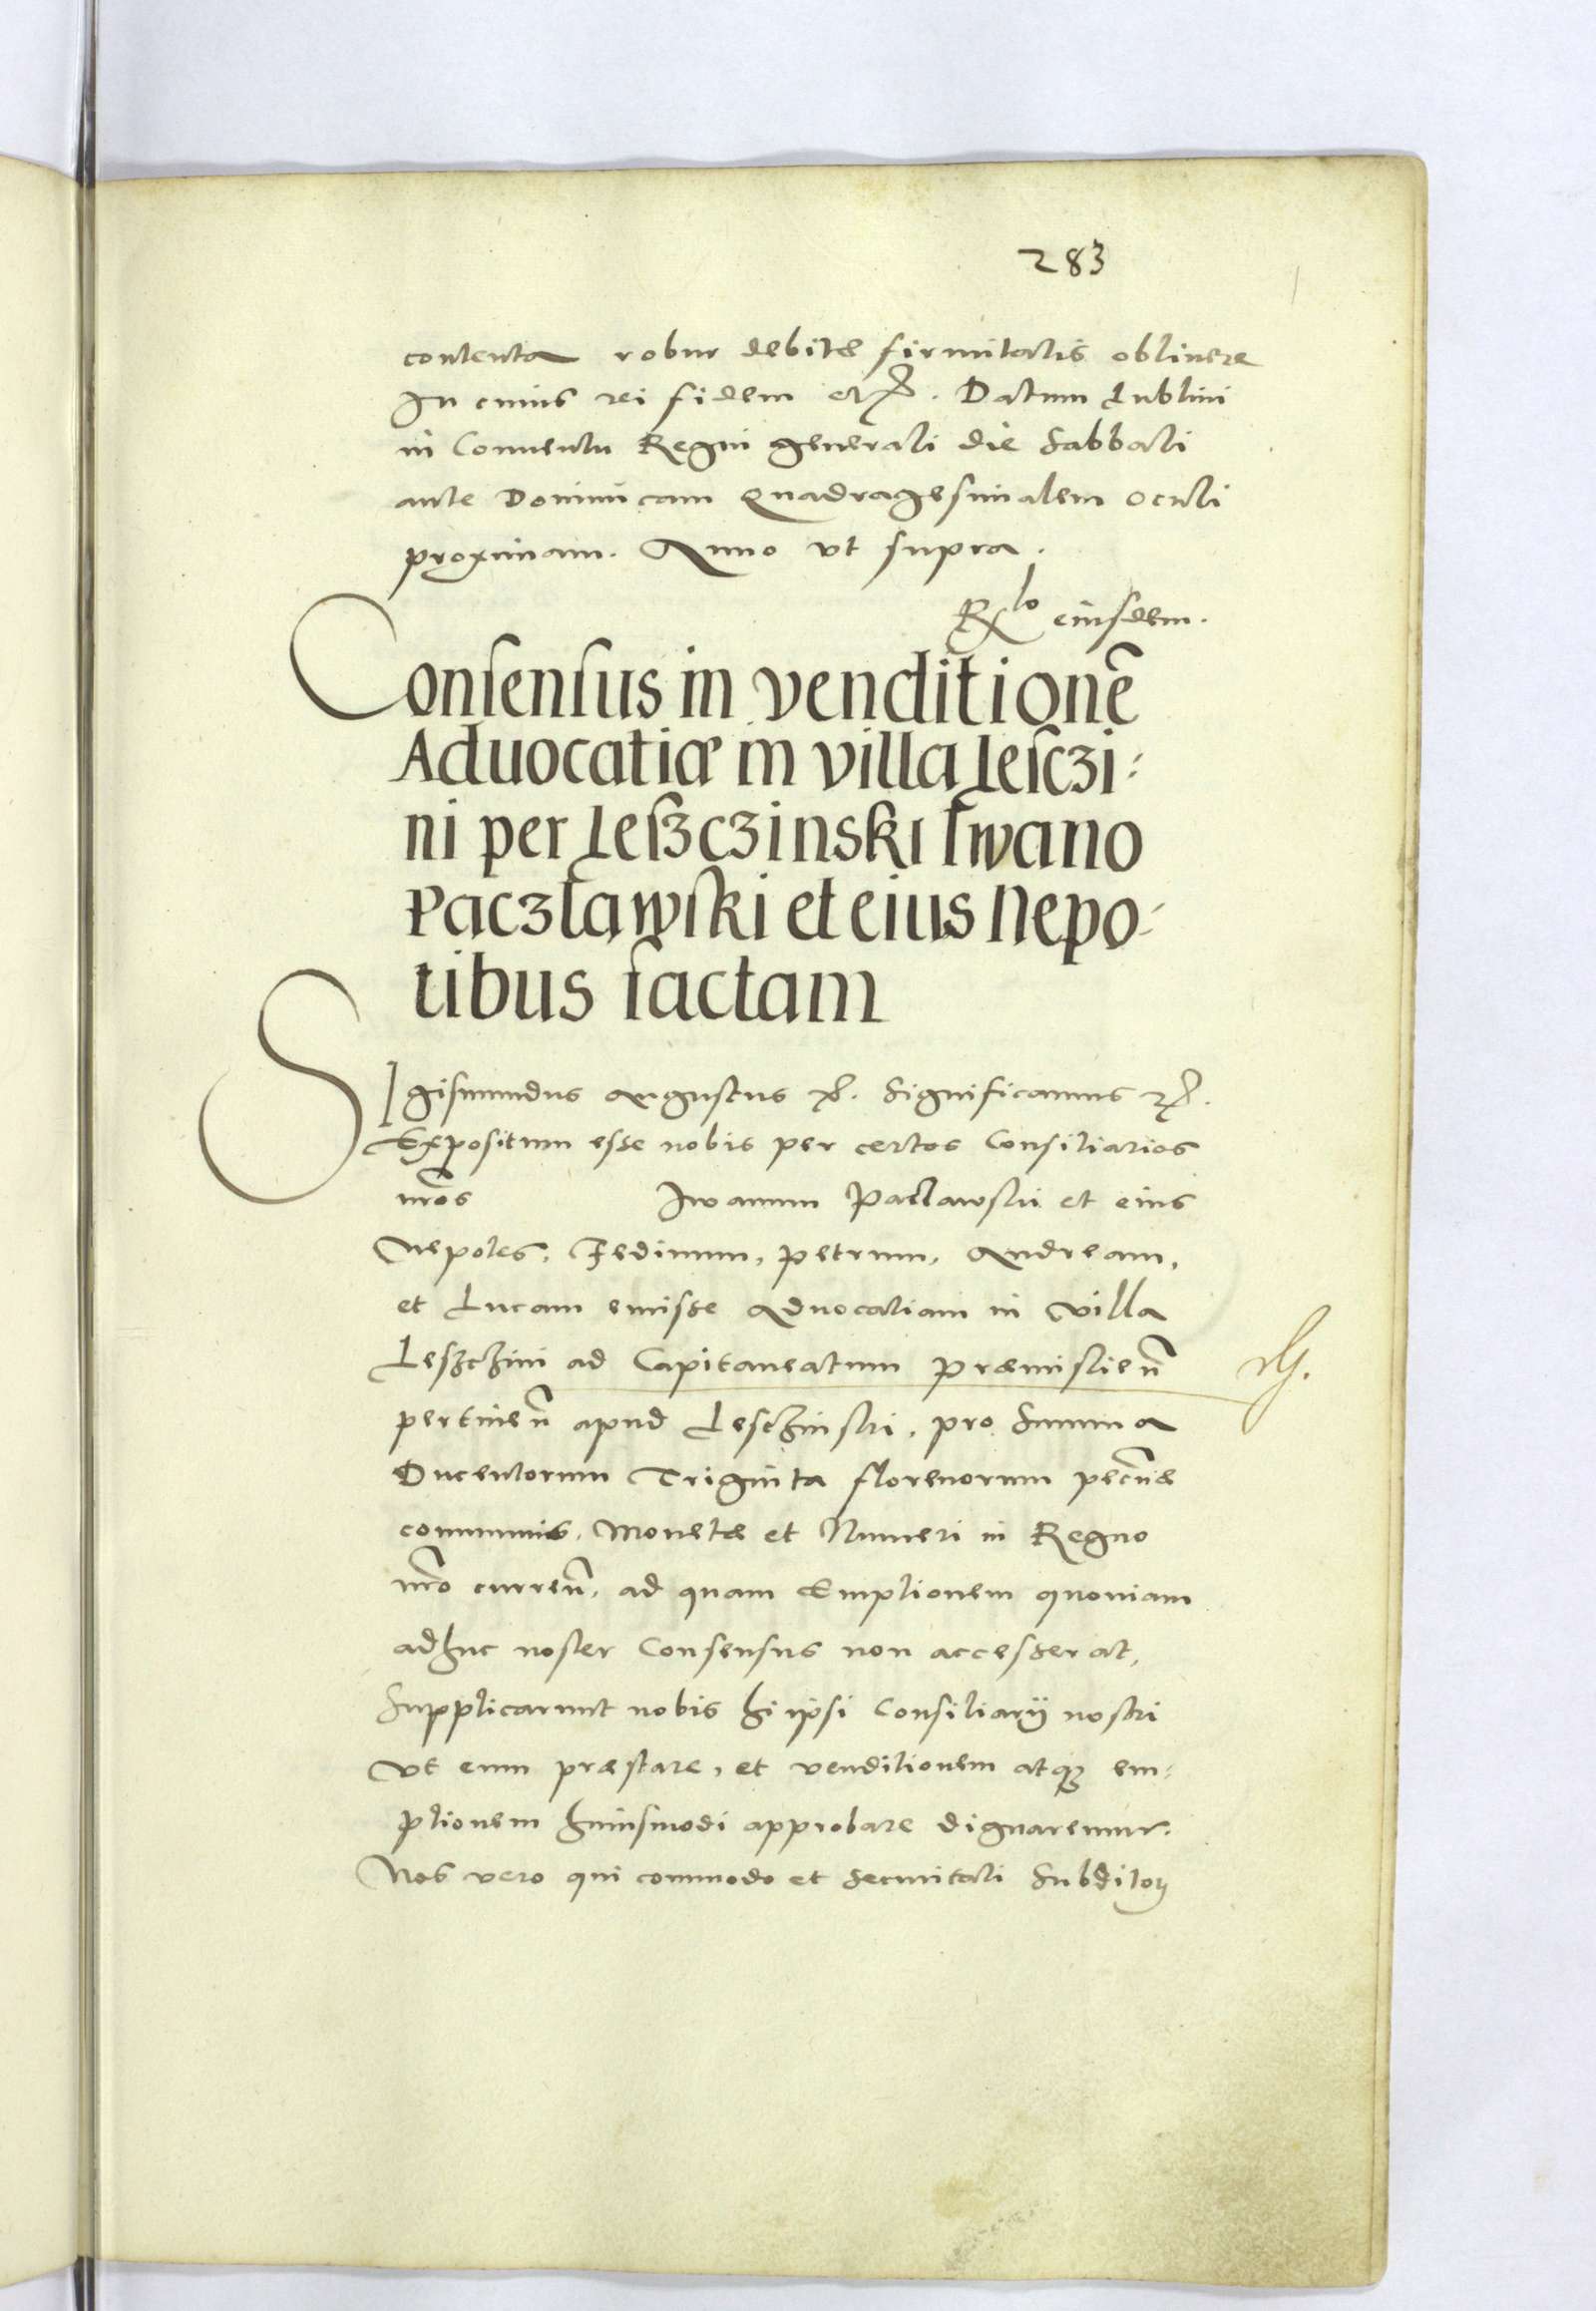 283
contenta robur debitæ firmitatis obtinere
In cuius rei fidem etc. Datum Lublini
in Conuentu Regni generali die Sabbati
ante Dominicam Quadragesimalem Oculi
proximam. Anno vt supra.
Rlo eiusdem.
Consensus in venditionē
Aduocatiæ in villa Lesczi-
ni per Leszczinski Iwano
Paczławski et eius Nepo-
tibus factam
SIgismundus Augustus etc. Significamus etc.
Expositum esse nobis per certos Consiliarios
nr̃os Iwanum Paclawski et eius
Nepotes, Fedinum, Petrum, Andream,
et Lucam emisse Aduocatiam in villa
Leszczini ad Capitaneatum Præmislien̄
pertinen̄ apud Lesczinski, pro Summa
Ducentorum Triginta florenorum pecūiæ
communis, Monetæ et Numeri in Regno
nr̃o curren̄, ad quam Emptionem quoniam
adhuc noster Consensus non accesserat,
Supplicarunt nobis hi ipsi Consiliarij nostri
Vt eum præstare, et venditionem atq₃ em-
ptionem huiusmodi approbare dignaremur.
Nos vero qui commodo et securitati Subditoꝝ